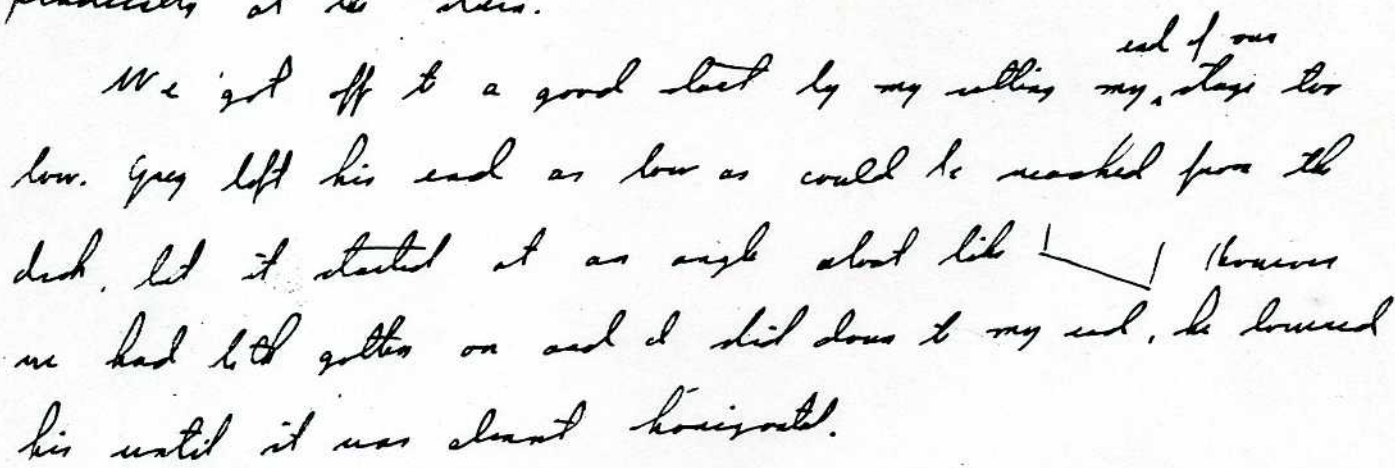 at the stern.
end of our
We got off to a good start by my setting my ‸ stage too
low. Greg left his end as low as could be reached from the
deck, but it started at an angle about like However
we had both gotten on and I slid down to my end, he lowered
his until it was almost horizontal.